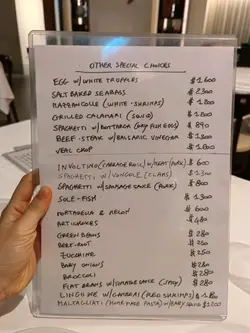 OTHER SPECIAL CHOICES
EGG W/ WHITE TRUFFLES $ 1600
SALT BAKED SEABASS $ 2300
MAZZANCOLLE (WHITE-SHRIMPS) $ 1800
GRILLED CALAMARI (SQUID) $ 1800
SPAGHETTI W/ BOTTARGA (GREY FISH EGGS) $ 890
BEEF-STEAK W/ BALSAMIC VINEGAR $ 1300
VEAL CHOP $ 1800
INVOLTINO (CABBAGE ROLL) W/ MEAT (PORK) $ 600
SPAGHETTI W/ VONGOLE (CLAMS)
SPAGHETTI W/ SAUSAGE SAUCE (PORK) $ 800
SOLE-FISH $ 1300
MORTADELLA & MELON $ 600
ARTICHOKES $ 480
GREEN BEANS $ 280
BEEF-ROOT $ 250
ZUCCHINE $ 250
BABY ONIONS $ 280
BROCCOLI $ 280
FLAT BEANS W/ TOMATO SAUCE $ 280
LINGUINE W/ GAMBERI (RED SHRIMPS)
MALTAGLIATI (HOME MADE PASTA) W/